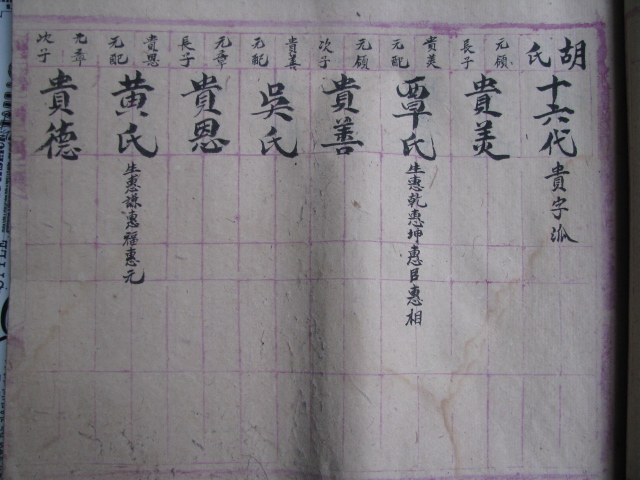 胡氏
十六代 貴字派
元領長子
貴美
貴美元配
覃氏 生惠乾惠坤惠臣惠相
元領次子
貴善
貴善元配
吳氏
元章長子
貴恩
貴恩元配
黄氏 生惠謙惠福惠元
元章次子
貴德